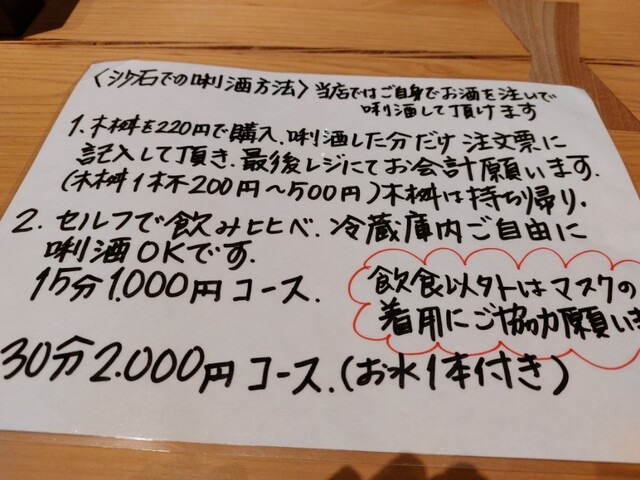 〈汐石での唎酒方法〉当店ではご自身でお酒を注いで
唎酒して頂けます
1. 木桝を220円で購入、唎酒した分だけ注文票に
記入して頂き、最後レジにてお会計願います。
(木桝1杯200円〜500円)木桝は持ち帰り。
2. セルフで飲み比べ、冷蔵庫内ご自由に
唎酒OKです。
15分1.000円コース.
飲食以外はマスクの
着用にご協力願いま
30分2.000円コース.(お水1本付き)